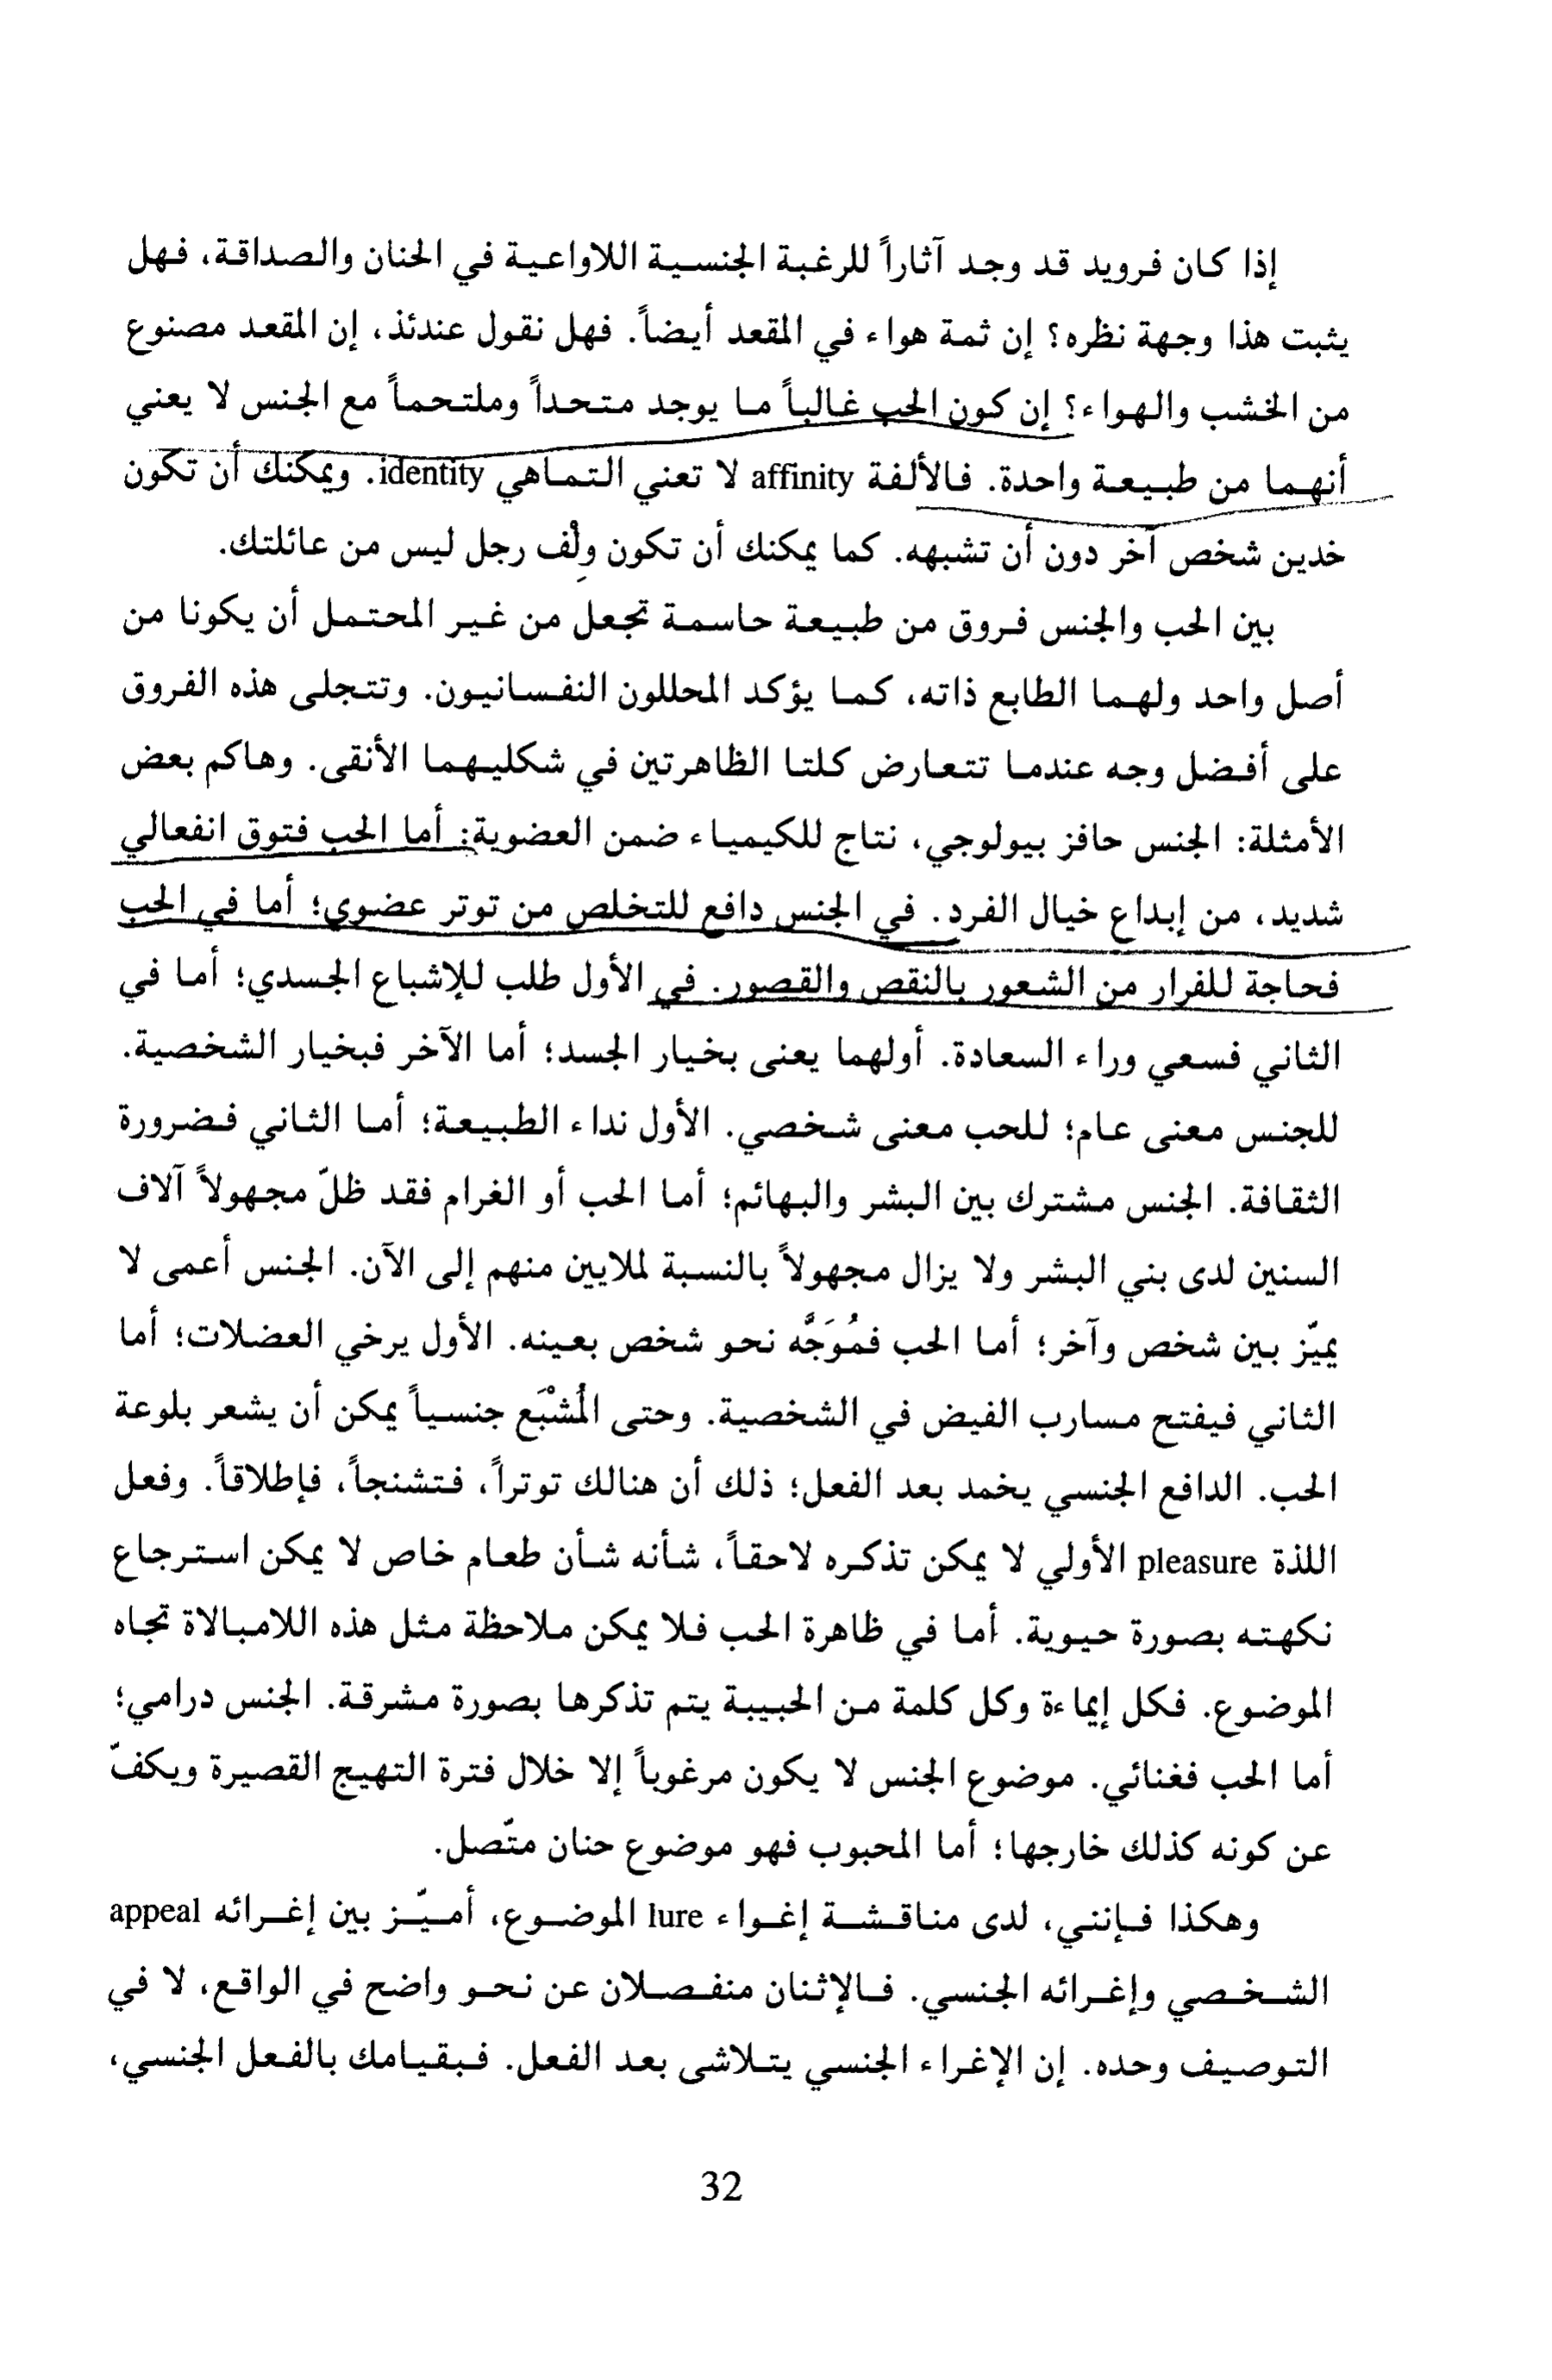 إذا كان فرويد قد وجد آثاراً للرغبة الجنسية اللاواعية في الحنان والصداقة، فهل
يثبت هذا وجهة نظره؟ إن ثمة هواء في المقعد أيضاً. فهل نقول عندئذ، إن المقعد مصنوع
من الخشب والهواء؟ إن كون الحب غالباً ما يوجد متحداً وملتحماً مع الجنس لا يعني
أنهما من طبيعة واحدة. فالألفة affinity لا تعني التماهي identity. ويمكنك أن تكون
خدين شخص آخر دون أن تشبهه. كما يمكنك أن تكون وِلْف رجل ليس من عائلتك.
بين الحب والجنس فروق من طبيعة حاسمة تجعل من غير المحتمل أن يكونا من
أصل واحد ولهما الطابع ذاته، كما يؤكد المحللون النفسانيون. وتتجلى هذه الفروق
على أفضل وجه عندما تتعارض كلتا الظاهرتين في شكليهما الأنقى. وهاكم بعض
الأمثلة: الجنس حافز بيولوجي، نتاج للكيمياء ضمن العضوية: أما الحب فتوق انفعالي
شديد، من إبداع خيال الفرد. في الجنس دافع للتخلص من توتر عضوي؛ أما في الحب
فحاجة للفرار من الشعور بالنقص والقصور. في الأول طلب للإشباع الجسدي؛ أما في
الثاني فسعي وراء السعادة. أولهما يعنى بخيار الجسد؛ أما الآخر فبخيار الشخصية.
للجنس معنى عام؛ للحب معنى شخصي. الأول نداء الطبيعة؛ أما الثاني فضرورة
الثقافة. الجنس مشترك بين البشر والبهائم؛ أما الحب أو الغرام فقد ظلّ مجهولاً آلاف
السنين لدى بني البشر ولا يزال مجهولاً بالنسبة لملايين منهم إلى الآن. الجنس أعمى لا
يميّز بين شخص وآخر؛ أما الحب فمُوَجَّه نحو شخص بعينه. الأول يرخي العضلات؛ أما
الثاني فيفتح مسارب الفيض في الشخصية. وحتى المُشْبَع جنسياً يمكن أن يشعر بلوعة
الحب. الدافع الجنسي يخمد بعد الفعل؛ ذلك أن هنالك توتراً، فتشنجاً، فإطلاقاً. وفعل
اللذة pleasure الأولي لا يمكن تذكره لاحقاً، شأنه شأن طعام خاص لا يمكن استرجاع
نكهته بصورة حيوية. أما في ظاهرة الحب فلا يمكن ملاحظة مثل هذه اللامبالاة تجاه
الموضوع. فكل إيماءة وكل كلمة من الحبيبة يتم تذكرها بصورة مشرقة. الجنس درامي؛
أما الحب فغنائي. موضوع الجنس لا يكون مرغوباً إلا خلال فترة التهيج القصيرة ويكفّ
عن كونه كذلك خارجها؛ أما المحبوب فهو موضوع حنان متّصل.
وهكذا فإنني، لدى مناقشة إغواء lure الموضوع، أميّز بين إغرائه appeal
الشخصي وإغرائه الجنسي. فالإثنان منفصلان عن نحو واضح في الواقع، لا في
التوصيف وحده. إن الإغراء الجنسي يتلاشى بعد الفعل. فبقيامك بالفعل الجنسي،
32